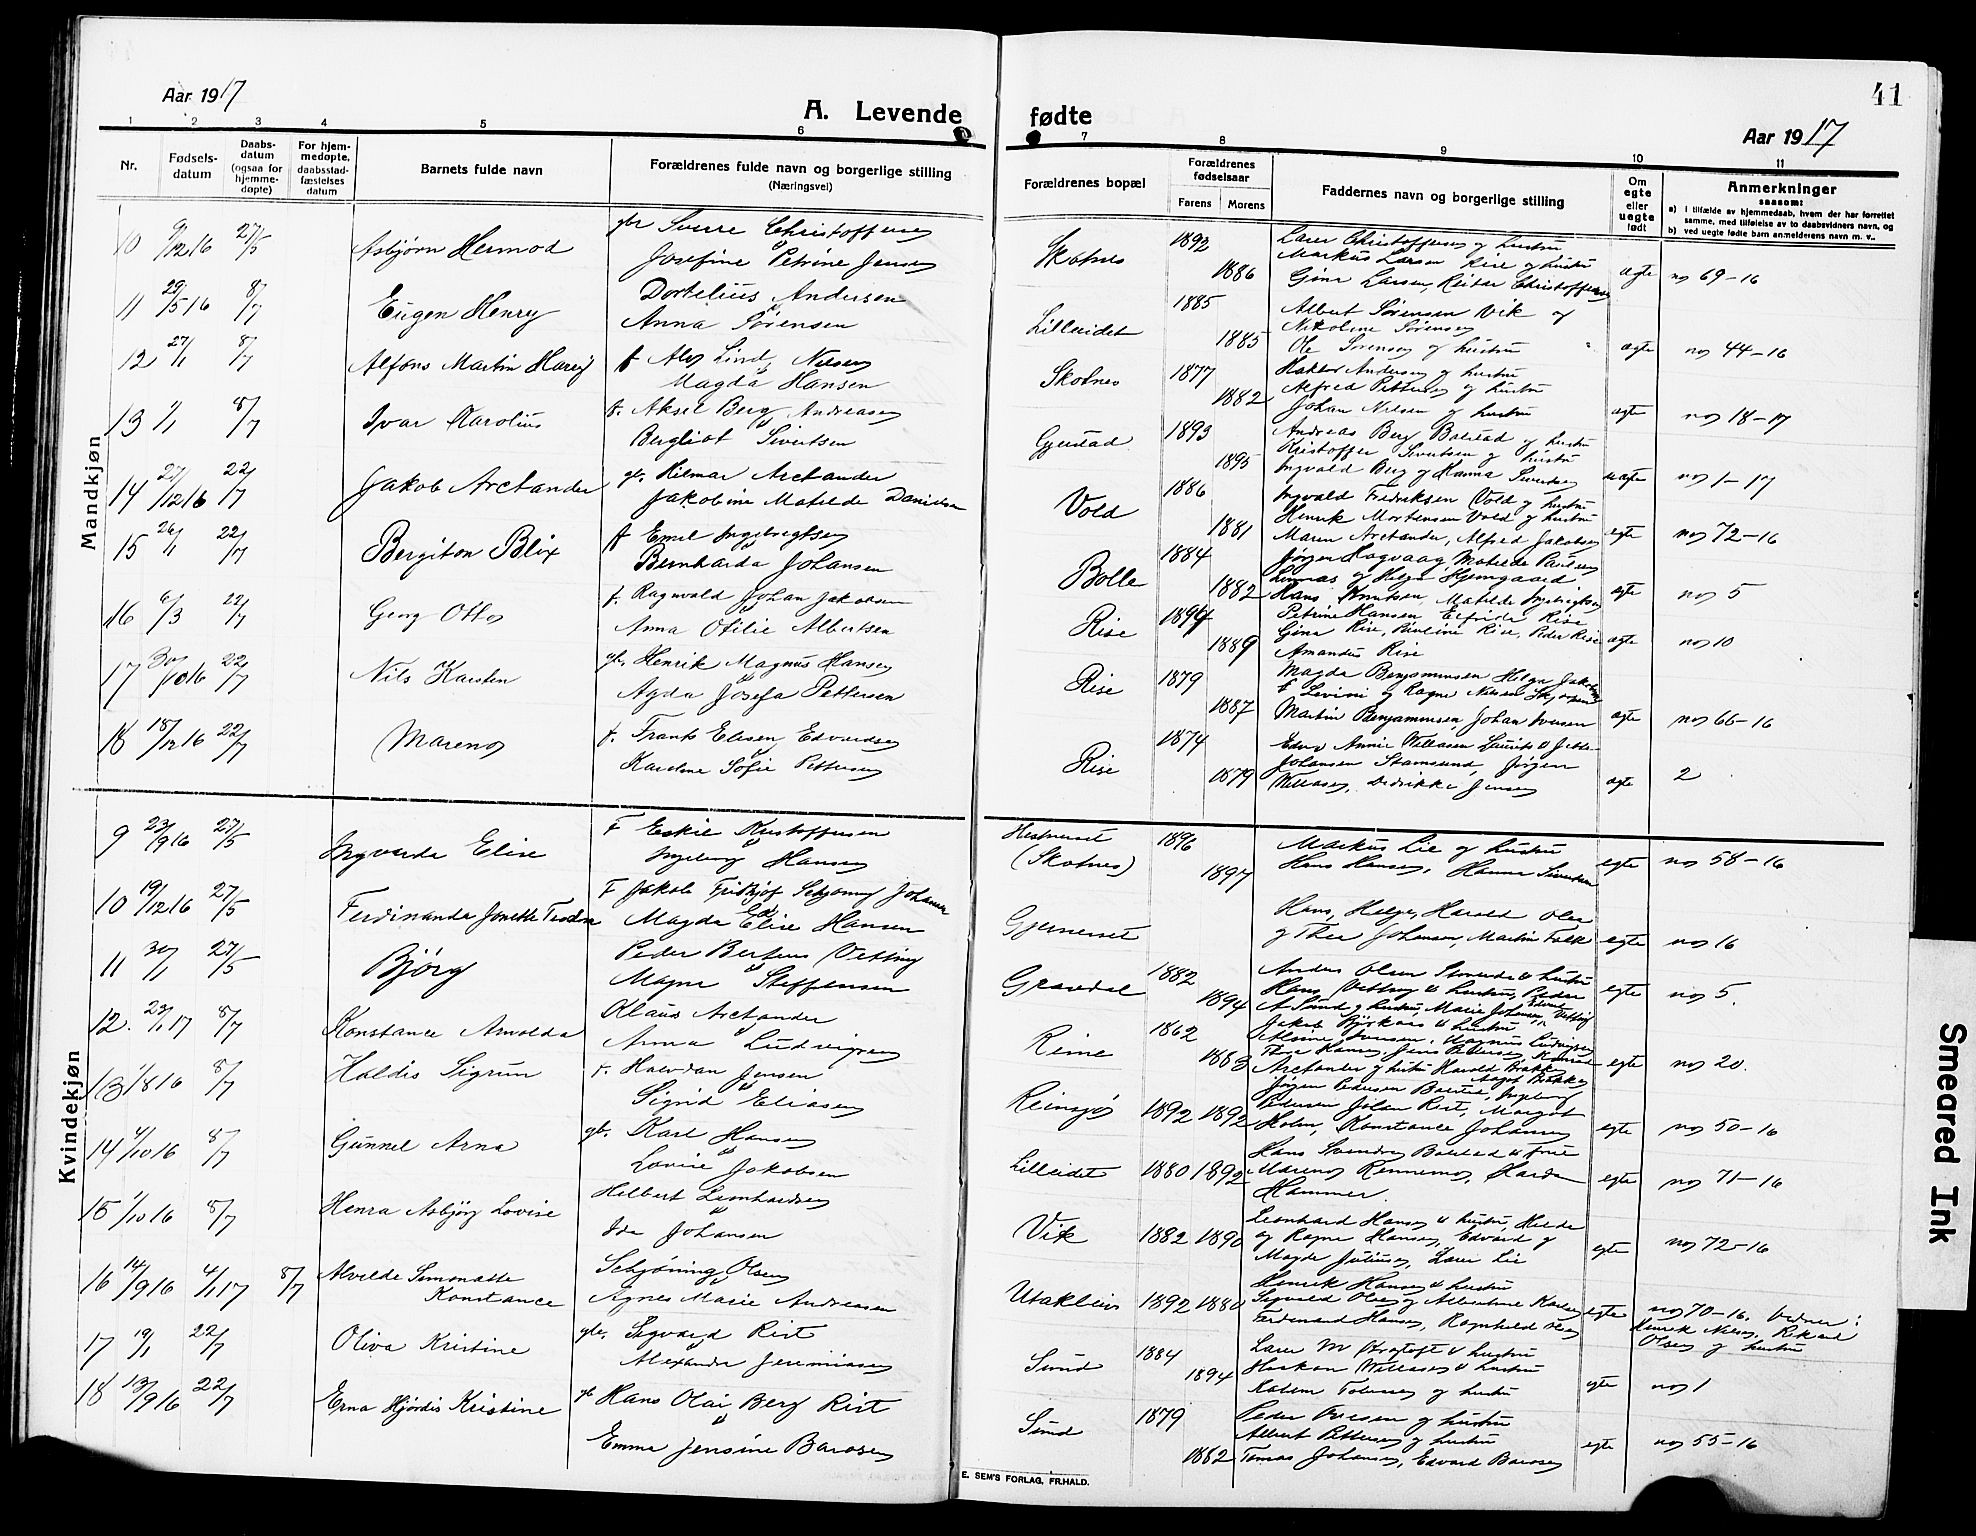 Aar 1917
A. Levende fødte
41
Aar 1917
1 2 3 4 5 6 7 8 9 10 11
Nr. Fødsels-datum Daabs-datum (ogsaa for hjemme-døpte) For hjem-medøpte, daabsstad-fæstelses datum Barnets fulde navn Forældrenes fulde navn og borgerlige stilling (Næringsvei)
Forældrenes bopæl Forældrenes fødselsaar Farens Morens Faddernes navn og borgerlige stilling Om egte eller uegte født Anmerkninger saasom:
a) i tilfælde av hjemmedaab, hvem der har forrettet samme, med tilføielse av to daabsvidners navn, og
b) ved uegte fødte barn anmelderens navn m. v.
Mandkjøn
10 9/12 16 27/5 Asbjørn Hermod gbr Sverre Christoffersen
Josefine Petrine Jensen
Skotnes 1892 1886 Lars Christoffersen og hustru
Markus Larsen Rise og hustru
Gina Larsen, Reidar Christoffersen egte no 69-16
11 29/5 16 8/7 Eugen Henry Dortelius Andersen
Anna Sørensen
Lilleeidet 1885 1885 Albert Sørensen Vik og
Nikoline Sørensen
Ole Sørensen og hustru egte no 44-16
12 27/1 8/7 Alfons Martin Harry f Alf Lind Nilsen
Magda Hansen
Skotnes 1877 1882 Haldor Andersen og hustru
Alfred Pettersen og hustru
Johan Nilsen og hustru egte no 18-17
13 1/1 8/7 Ivar Karolius f. Aksel Berg Andreasen
Bergliot Sivertsen
Gjerstad 1893 1895 Andreas Berg Bolstad og hustru
Kristoffer Sivertsen og hustru
Ingvald Berg og Hanna Sivertsen uegte no 1-17
14 27/12 16 22/7 Jakob Arctander gbr. Hilmar Arctander
Jakobine Matilde Danielsen
Vold 1886 1881 Ingvald Fredriksen Vold og hustru
Henrik Mortensen Vold og hustru
Maren Arctander, Alfred Jakobsen egte no 72-16
15 26/1 22/7 Bergiton Blix f Emil Ingebrigtsen
Bernharda Johansen
Bolle 1884 1882 Jørgen Hagvaag, Matilde Paulsen
Linnas og Helga Hjemgaard
Hans Knutsen, Matilde Ingebrigtsen egte no 5
16 6/3 22/7 Georg Otto f. Ragnvald Johan Jakobsen
Anna Otilie Albertsen
Rise 1894 1889 Petrine Hansen Elfride Rise
Gina Rise, Pauline Rise, Peder Rise
Amandus Rise egte no 10
17 30/10 16 22/7 Nils Karsten gbr. Henrik Magnus Hansen
Agda Josefa Pettersen
Rise 1879 1887 Magda Benjaminsen Helga Jakobsen
Martin Benjaminsen, Johan Iversen egte no 66-16
18 18/12 16 22/7 Mareno f. Frants Elesen Edvardsen
Karoline Sofie Pettersen
Rise 1874 1879 Johansen Stamsund, Jørgen
Willasen, Dedrikke Jensen egte 2
Kvindekjøn
9 23/9 16 27/5 Ingvarda Elise F Eskil Kristoffersen
Ingeborg Hansen
(Skotnes) 1896 1897 Markus Lie og hustru
Hans Hansen, Hanna Sivertsen egte no 58-16
10 19/12 16 27/5 Ferdinanda Jonette Teodora F Jakob Fridtjof Schjøning Johansen
Magda Elise Hansen
Gjerneset Hans, Helge, Harald Olea
og Thea Johansen, Martin Falk egte no 16
11 30/1 27/5 Bjørg Peder Berteus Vetting
Magna Steffensen
Gravdal 1882 1894 egte no 5.
12. 23/1 17 8/7 Konstance Arnolda Klaus Arctander
Anna Ludvigsen
Reine 1862 1883 Jakob Bjørkaas & hustru
Arctander og hustru Harald Brække egte no 20.
13 1/8 16 8/7 Haldis Sigrun f. Halvdan Jensen
Sigrid Eliasen
Reinsjø 1892 1892 Jørgen Pedersen Bolstad, Ingeborg
Pedersen Johan Rist, Margot
Holm, Konstance Johansen egte no 50-16
14 4/10 16 8/7 Gunnel Arna gb. Karl Hansen
Lovise Jakobsen
Lilleeidet 1880 1892 Hans Svendsen Bolstad & frue
Mareno Rennemo, Harda
Hammer. egte no 71-16
15 1/10 16 8/7 Henra Asbjørg Lovise Helbert Leonhardsen
Ida Johansen
Vik 1882 1890 Leonhard Hansen & hustru, Hilda
og Ragna Hansen, Edvard og
Magda Julius, Lars Lie egte no 72-16
16 14/9 16 4/1 17 8/7 Alvilde Simonette
Konstance
Schjøning Olsen
Agnes Marie Andreasen
Utakleiv 1892 1880 Henrik Hansen & hustru
Sigvald Olsen og Albertine Karlsen
Ferdinand Hansen, Ragnhild Olsen egte no 70-16. Vidner:
Henrik Nilsen, Rikard
Olsen og hustru
17 19/1 22/7 Oliva Kristine gbr. Sigvard Rist
Alexandra Jeremiasen
Sund 1884 1894 Lars M Kragtoft & hustru
Haakon Willasen & hustru
Kasem Tobiasen og hustru egte no 1
18 13/9 16 22/7 Erna Hjørdis Kristine gb Hans Olai Berg Rist
Emma Jensine Barosen
Sund 1879 1882 Peder Iversen og hustru
Albert Pettersen og hustru
Tomas Johansen, Edvard Barosen egte no 55-16
E. SEM'S FORLAG, FR.HALD.
Smeared Ink